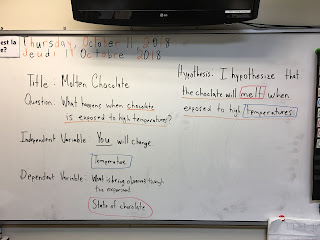 Thursday, October 11, 2018
Jeudi 11 Octobre 2018
Title: Molten Chocolate
Question: What happens when chocolate
is exposed to high temperatures?
Independent Variable: You will change.
Temperature
Dependent Variable: What is being observed through
the experiment
State of chocolate
Hypothesis: I hypothesize that
the chocolate will melt when
exposed to high temperatures.
LG